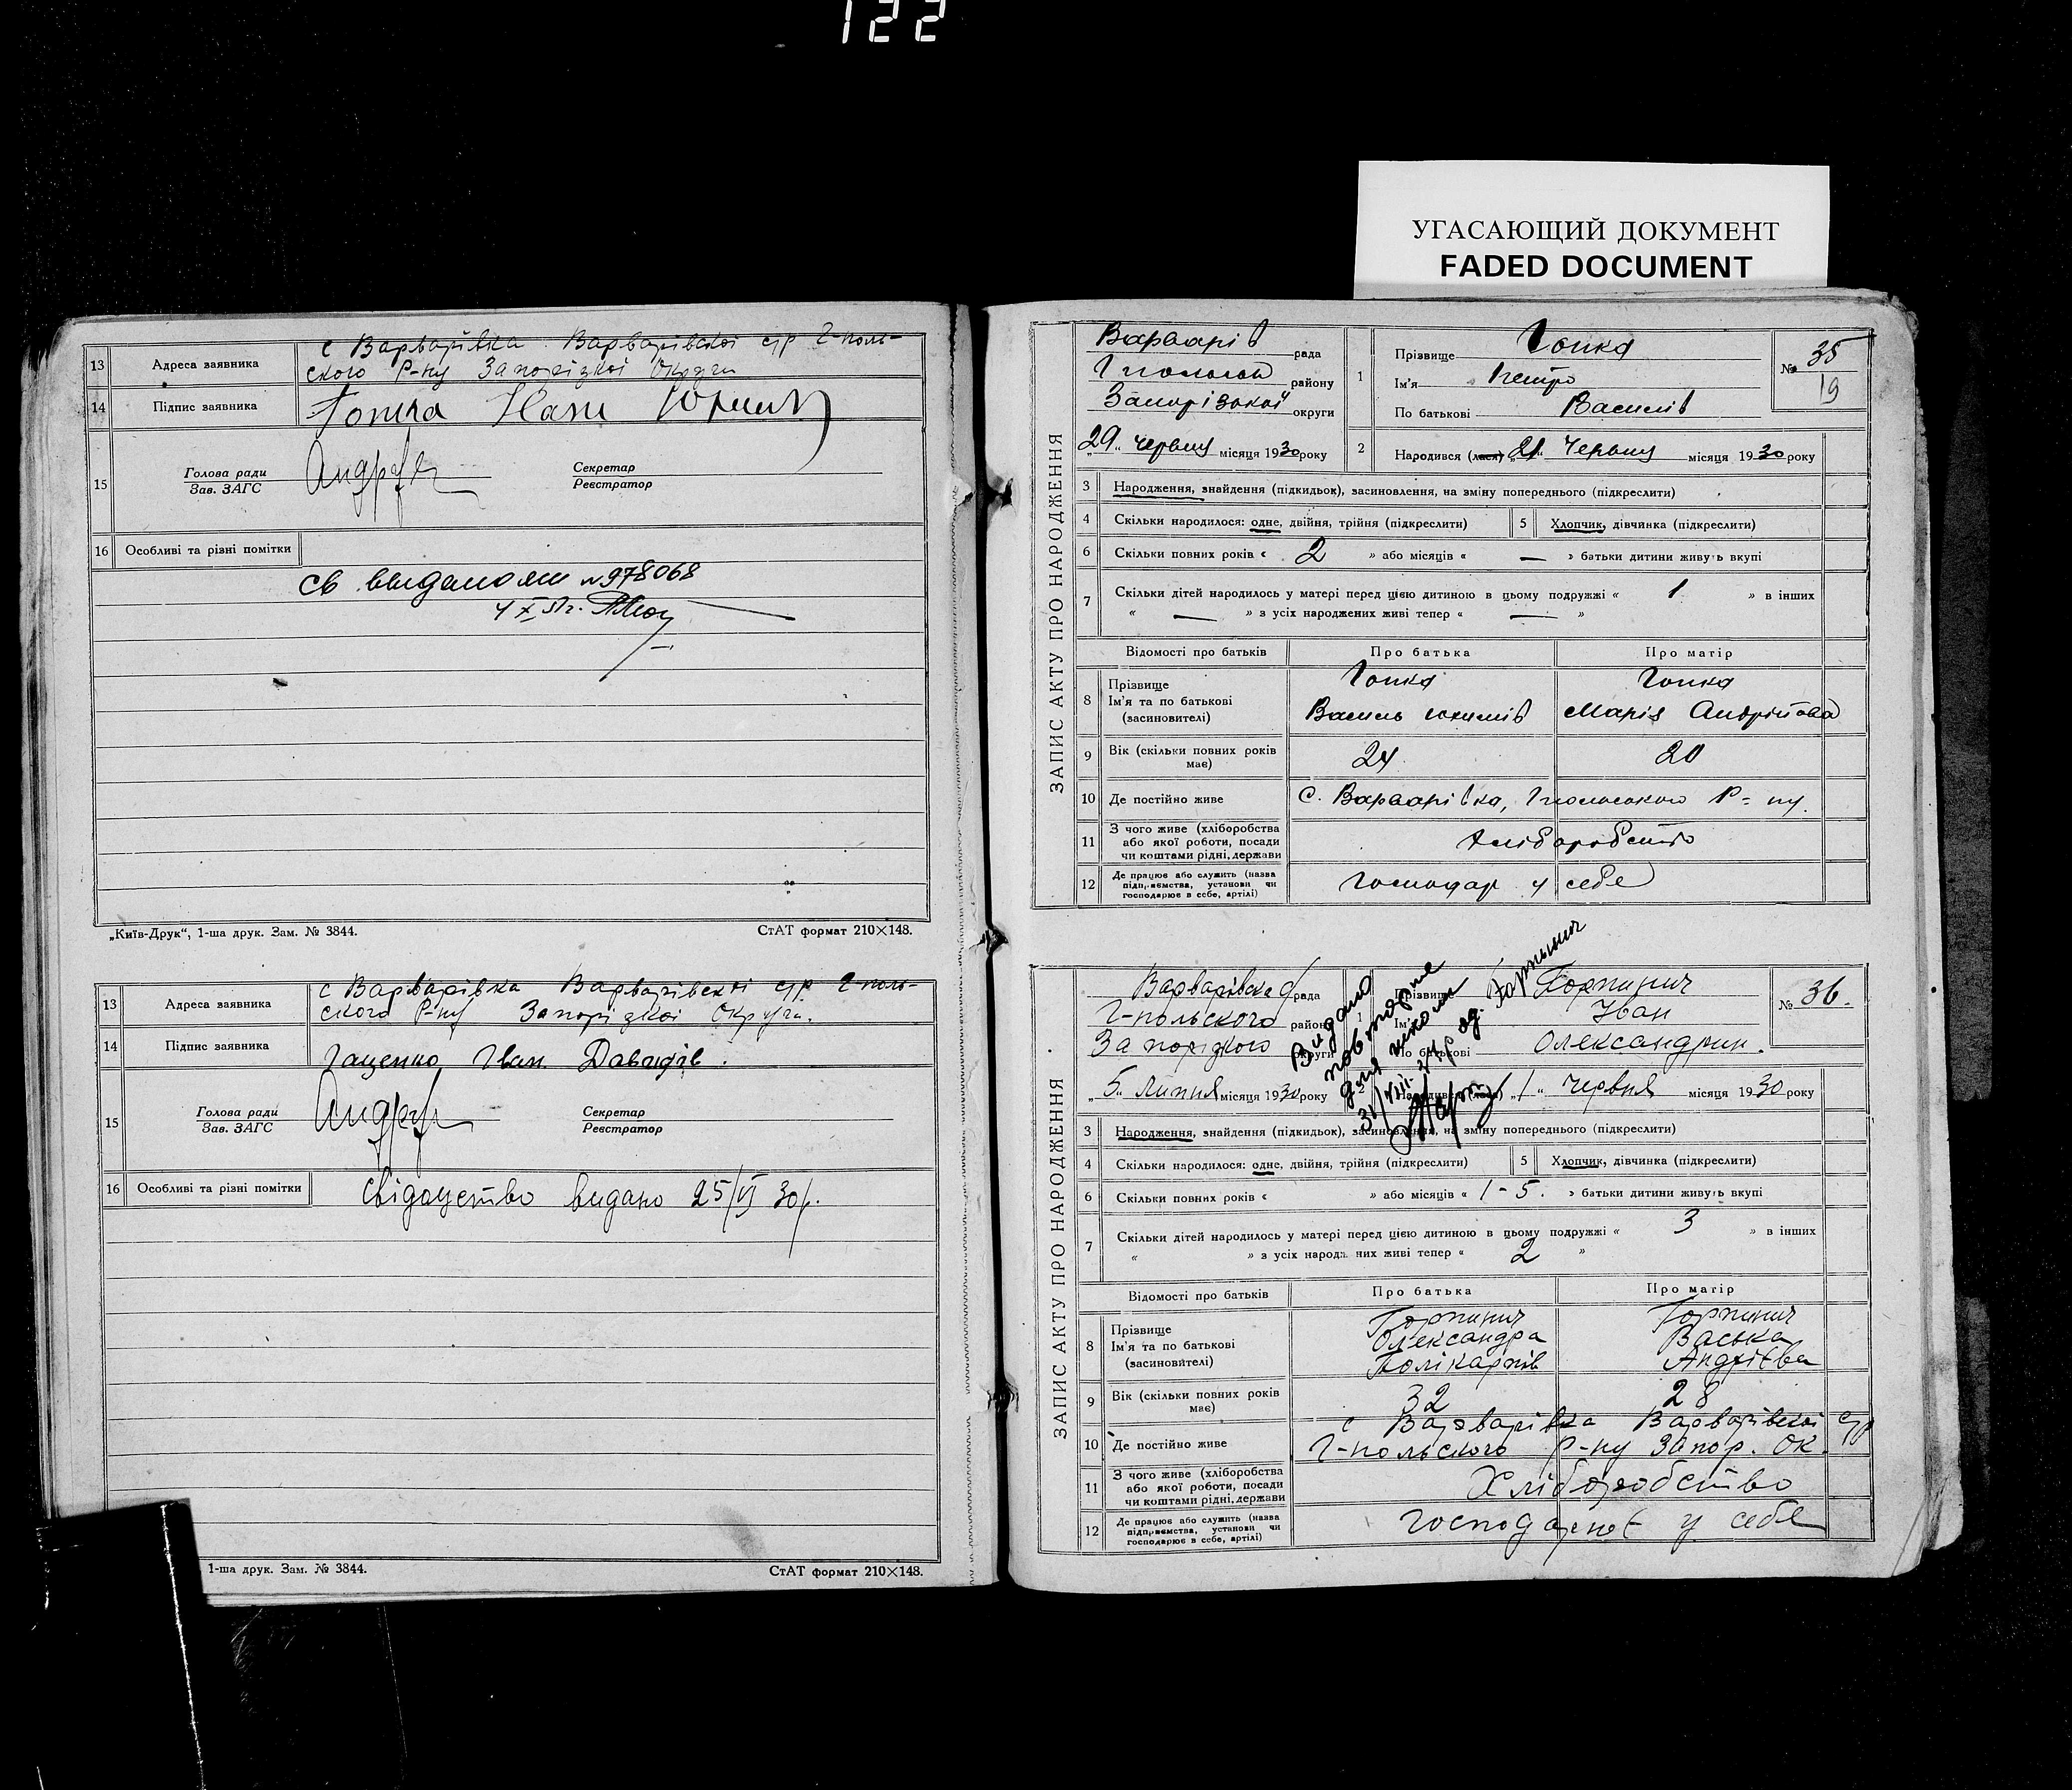 122
УГАСАЮЩИЙ ДОКУМЕНТ
FADED DOCUMENT
13 Адреса заявника с Варварівка Варварівскої с/р Г-поль-
ского Р-ну Запорізкої Округи
14 Підпис заявника
Голова ради Секретар
15 Зав. ЗАГС Реєстратор
16 Особливі та різні помітки
св. выдано №978068
„Київ-Друк“, 1-ша друк. Зам. № 3844. СтАТ формат 210×148.
13 Адреса заявника с Варварівка Варварівскої с/р Г-поль-
ского Р-ну Запорізкої Округи.
14 Підпис заявника Гаценко Іван Давидів.
Голова ради Секретар
15 Зав. ЗАГС Реєстратор
16 Особливі та різні помітки свідоцтво видано 25/VI 30р.
1-ша друк. Зам. № 3844. СтАТ формат 210×148.
ЗАПИС АКТУ ПРО НАРОДЖЕННЯ
Варварів рада
району
Запорізької округи
„29“ червня місяця 1930 року
1 Прізвище Гопка
Ім'я Петро
По батькові Василів
№ 35
19
2 Народився (лася) „21“ Червня місяця 1930 року
3 Народження, знайдення (підкидьок), засиновлення, на зміну попереднього (підкреслити)
4 Скільки народилося: одне, двійня, трійня (підкреслити) 5 Хлопчик, дівчинка (підкреслити)
6 Скільки повних років « 2 » або місяців « — » батьки дитини живуть вкупі
7 Скільки дітей народилось у матері перед цією дитиною в цьому подружжі « 1 » в інших
« — » з усіх народжених живі тепер « — »
Відомості про батьків Про батька Про матір
8 Прізвище Гопка Гопка
Ім'я та по батькові Василь Юхимів Марія Андріїова
(засиновителі)
9 Вік (скільки повних років має) 24 20
10 Де постійно живе с. Варварівка, Р-ну.
11 З чого живе (хліборобства
або якої роботи, посади Хліборобство
чи коштами рідні, держави
12 Де працює або служить (назва
підприємства, установи чи Господар у себе
господарює в себе, артілі)
ЗАПИС АКТУ ПРО НАРОДЖЕННЯ
Варварівска рада
Г-польского району
Запорізкого округи
„5“ Липня місяця 1930 року
Видано
повторне
для школи
1 Прізвище Горпинич
Ім'я Іван
По батькові Олександрин.
№ 36.
2 Народився (лася) „1“ Червня місяця 1930 року
3 Народження, знайдення (підкидьок), засиновлення, на зміну попереднього (підкреслити)
4 Скільки народилося: одне, двійня, трійня (підкреслити) 5 Хлопчик, дівчинка (підкреслити)
6 Скільки повних років « » або місяців « 1-5. » батьки дитини живуть вкупі
7 Скільки дітей народилось у матері перед цією дитиною в цьому подружжі « 3 » в інших
« » з усіх народжених живі тепер « 2 »
Відомості про батьків Про батька Про матір
8 Прізвище Горпинич Горпинич
Ім'я та по батькові Олександра Васька
(засиновителі) Полікарпів Андрієва
9 Вік (скільки повних років має) 32 28
с Варварівка Варварівскої с/р
10 Де постійно живе Г-польского р-ну Запор. Ок.
11 З чого живе (хліборобства
або якої роботи, посади Хліборобство
чи коштами рідні, держави
12 Де працює або служить (назва
підприємства, установи чи господарює у себе
господарює в себе, артілі)